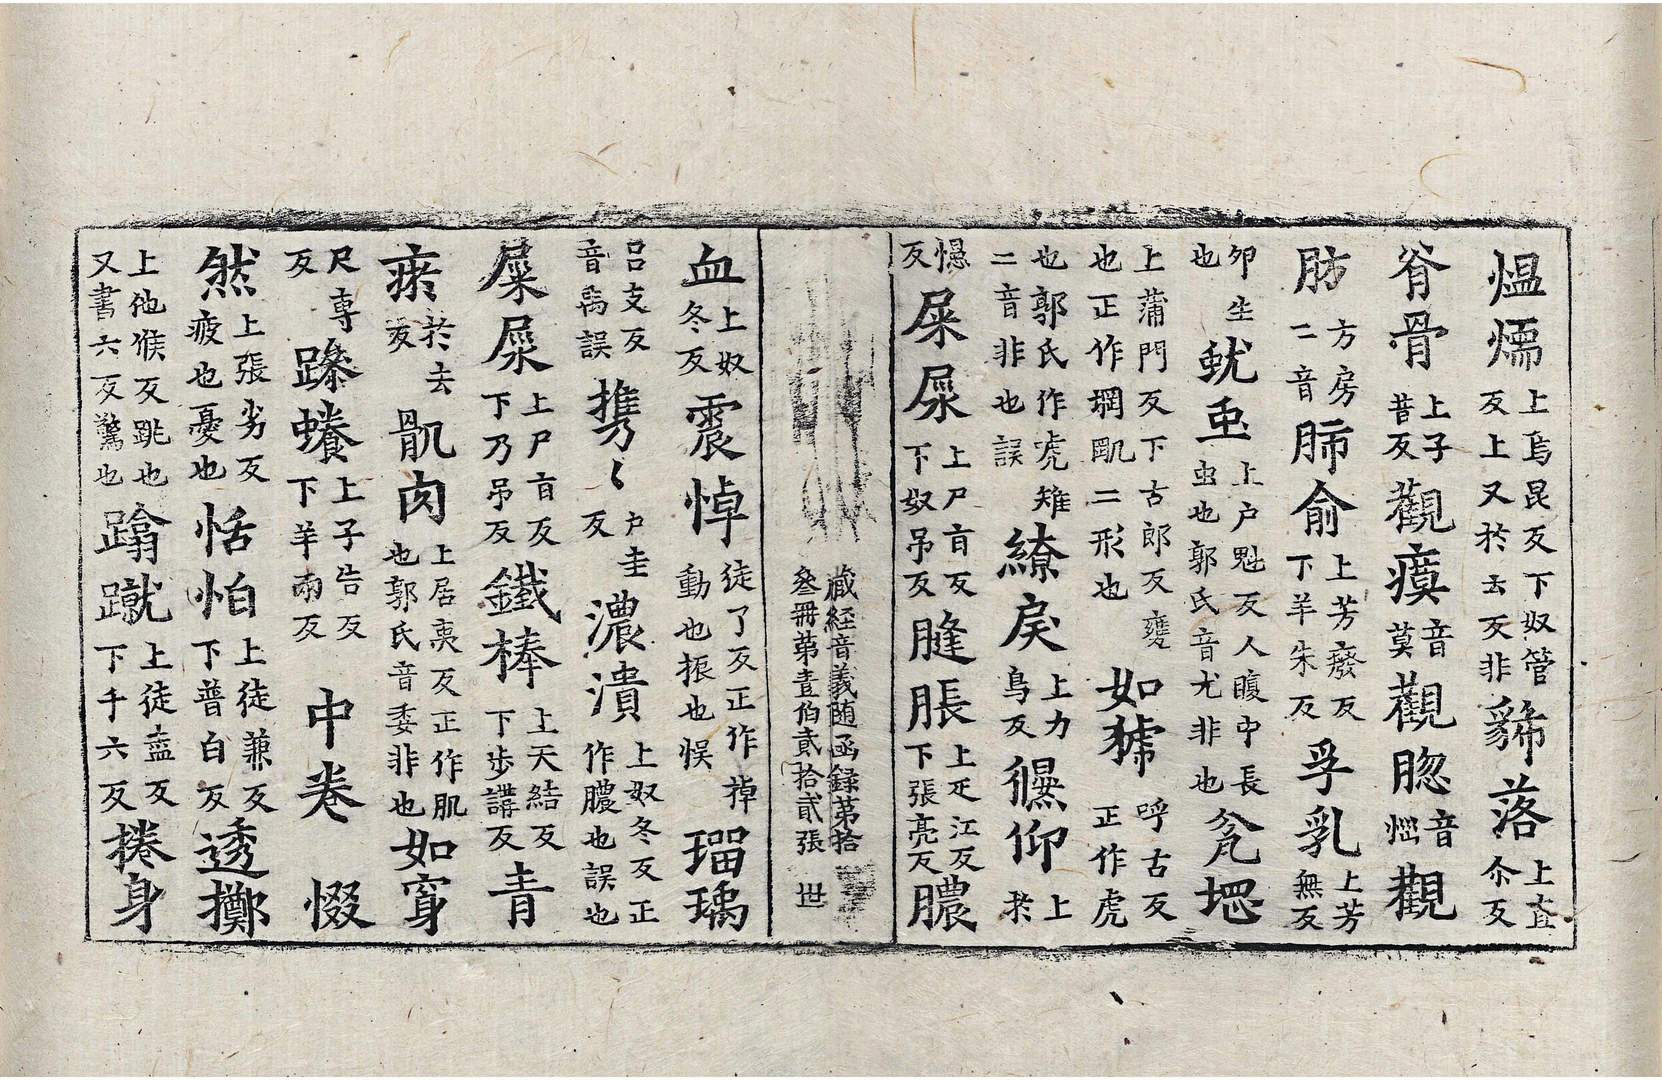 熅燸上烏昆反下奴管反上又於去反非豸帶落上直尒反
脊骨上子昔反觀瘼音莫觀腦音惱觀
肪方房二音肺俞上芳癈反下羊朱反孚乳上芳無反
卵生也蚘䖝上户魁反人腹中長虫也郭氏音尤非也瓫堽
上蒲門反下古郎反甕也正作𤭛㼚二形也如㹱呼古反正作虎
也郭氏作虎雉二音非也誤繚戾上力鳥反仰上
反屎尿上尸盲反下奴吊反膖脹上疋江反下張亮反膿
藏経音義随函録第拾
叄冊第壹伯貳拾貳張 世
血上奴冬反震悼徒了反正作掉動也振也悮瑠璃
吕支反音禹誤攜々户圭反濃潰上奴冬反正作膿也誤也
屎尿上尸盲反下乃吊反鐵棒上天結反下歩講反青
瘀於去反肌肉上居夷反正作肌也郭氏音委非也如穿
尺專反蠔蛘上子告反下羊兩反 中卷 惙
然上張劣反疲也憂也恬怕上徒兼反下普白反透擲
上他候反跳也又書六反驚也蹹蹴上徒盍反下千六反捲身